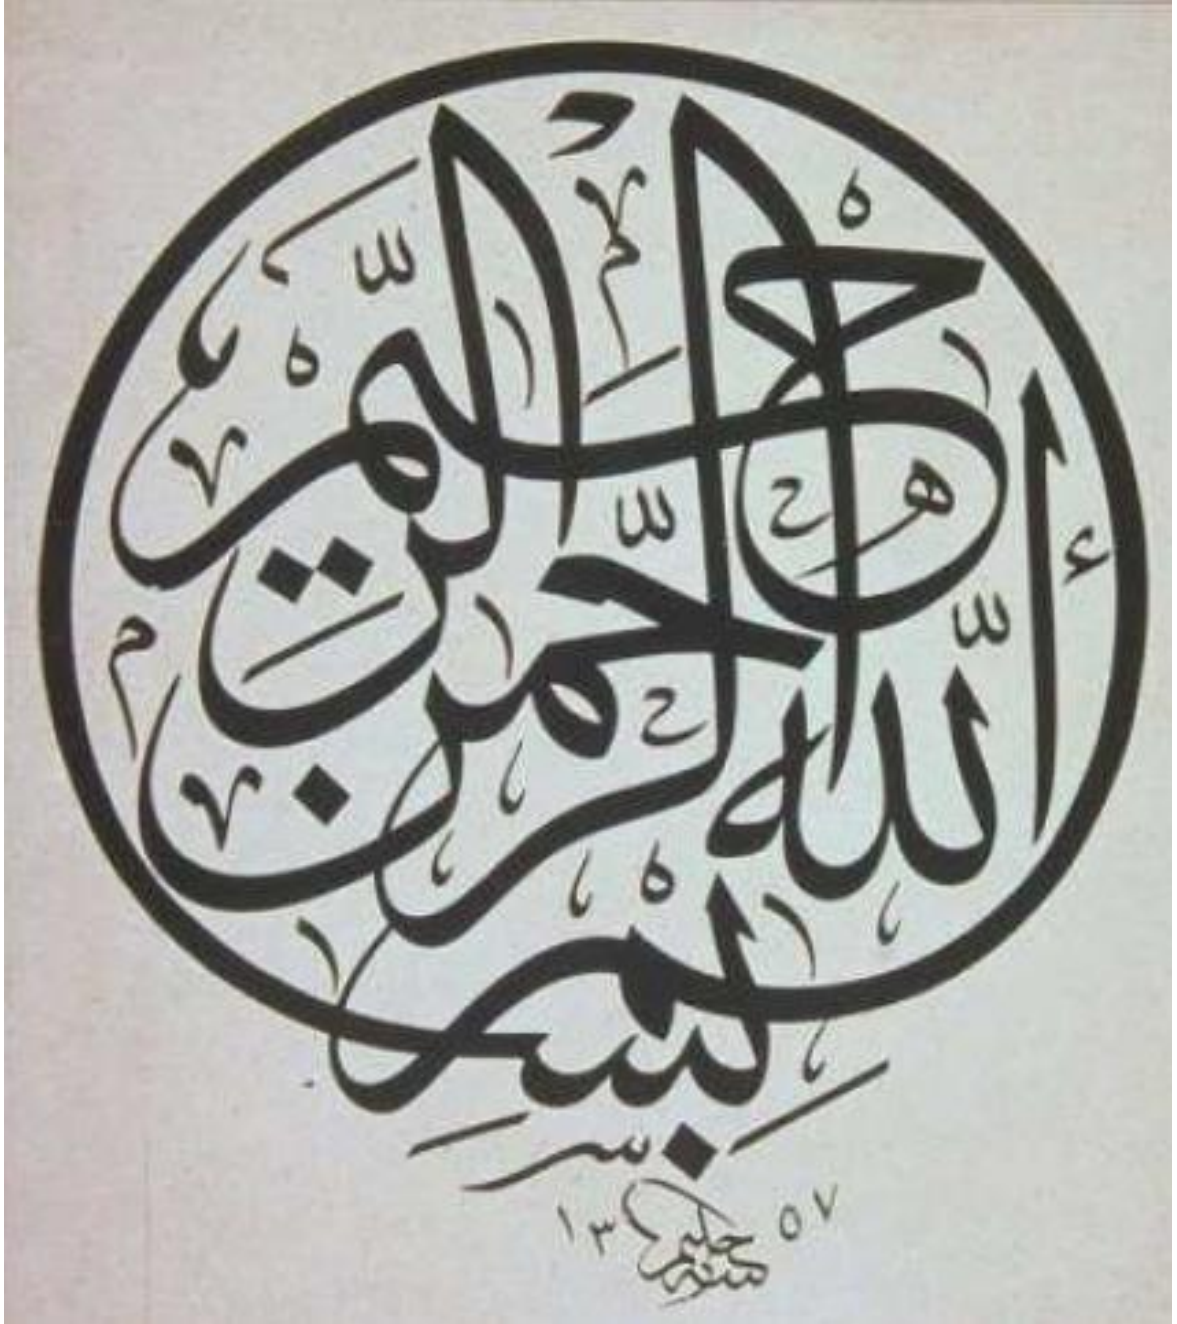 بِسْمِ اللّٰهِ الرَّحْمٰنِ الرَّحِيمِ
١٣ حليم ٥٧